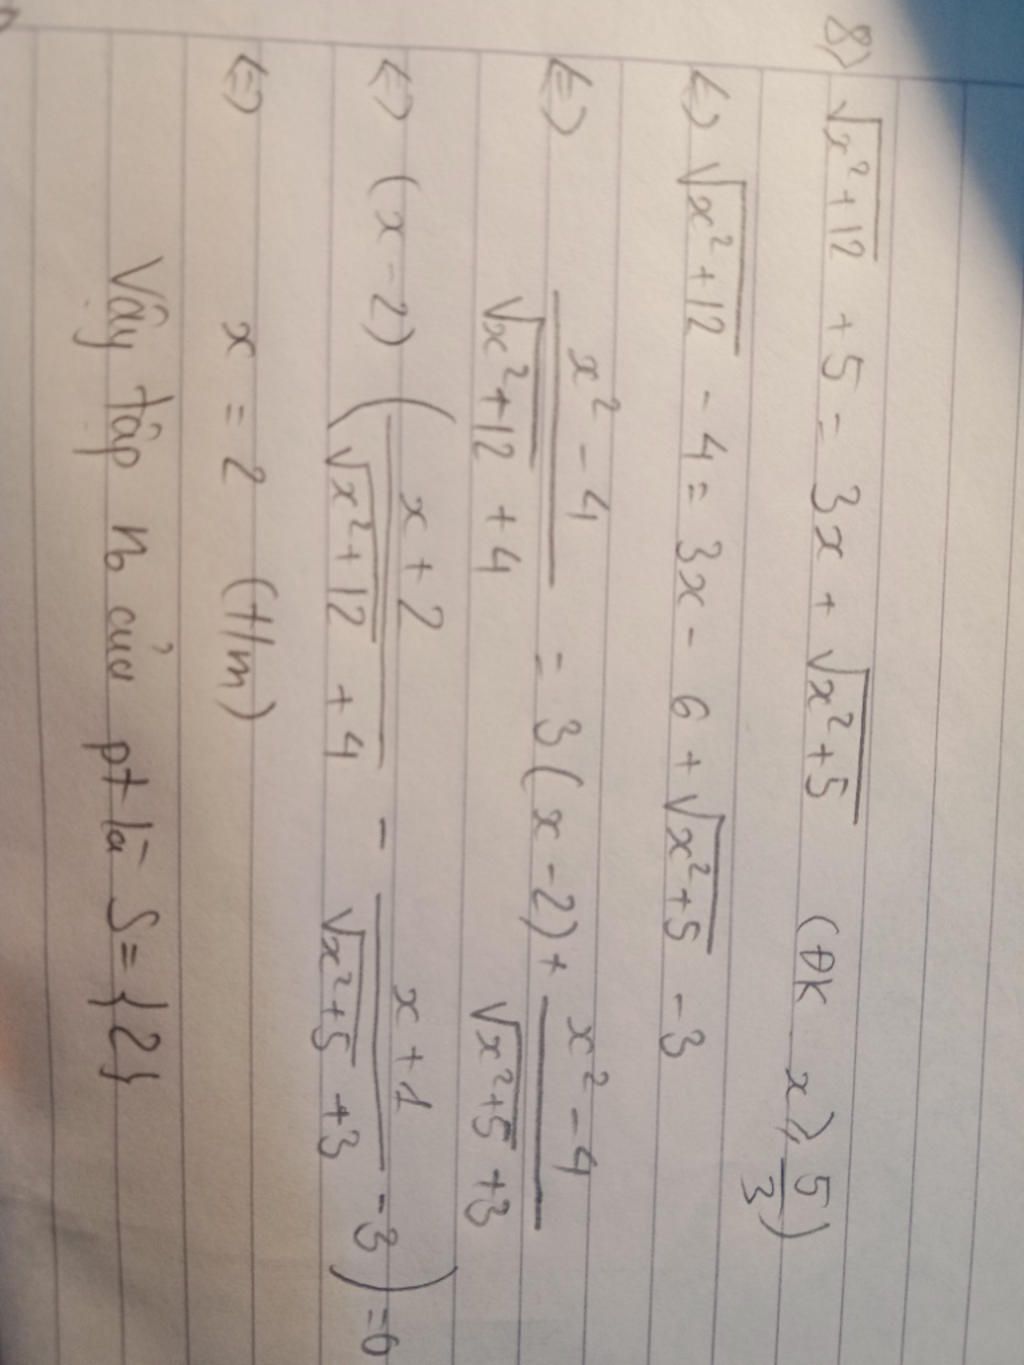 8) √(x²+12) + 5 = 3x + √(x²+5) (ĐK x ≥ 5/3)
<=> √(x²+12) - 4 = 3x - 6 + √(x²+5) - 3
<=> (x² - 4)/(√(x²+12) + 4) = 3(x - 2) + (x² - 4)/(√(x²+5) + 3)
<=> (x - 2) ((x + 2)/(√(x²+12) + 4) - (x + 1)/(√(x²+5) + 3) - 3) = 0
<=> x = 2 (t/m)
Vậy tập n₀ của pt là S = {2}